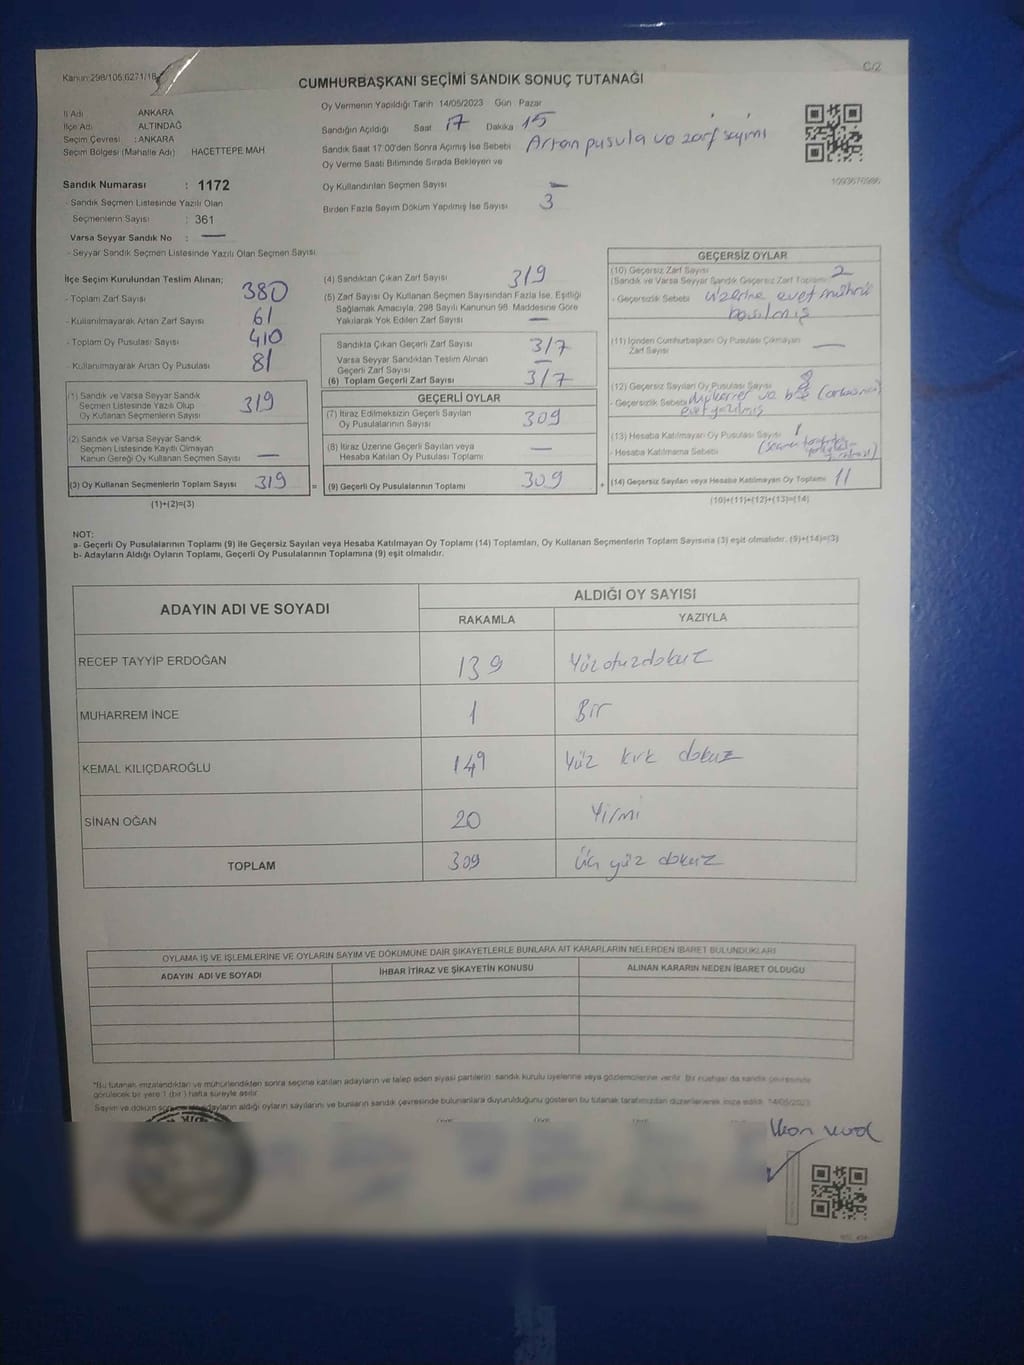 Kanun:298/105,6271/18
C/2
CUMHURBAŞKANI SEÇİMİ SANDIK SONUÇ TUTANAĞI
İl Adı ANKARA
İlçe Adı ALTINDAĞ
Seçim Çevresi : ANKARA
Seçim Bölgesi (Mahalle Adı) HACETTEPE MAH
Sandık Numarası : 1172
- Sandık Seçmen Listesinde Yazılı Olan
Seçmenlerin Sayısı : 361
Varsa Seyyar Sandık No : —
- Seyyar Sandık Seçmen Listesinde Yazılı Olan Seçmen Sayısı
Oy Vermenin Yapıldığı Tarih 14/05/2023 Gün : Pazar
Sandığın Açıldığı Saat 17 Dakika 15
Sandık Saat 17:00'den Sonra Açımış İse Sebebi Artan pusula ve zarf sayımı
Oy Verme Saati Bitiminde Sırada Bekleyen ve
Oy Kullandırılan Seçmen Sayısı —
Birden Fazla Sayım Döküm Yapılmış İse Sayısı 3
1093676986
İlçe Seçim Kurulundan Teslim Alınan;
- Toplam Zarf Sayısı 380
- Kullanılmayarak Artan Zarf Sayısı 61
- Toplam Oy Pusulası Sayısı 410
- Kullanılmayarak Artan Oy Pusulası 81
(1) Sandık ve Varsa Seyyar Sandık
Seçmen Listesinde Yazılı Olup
Oy Kullanan Seçmenlerin Sayısı 319
(2) Sandık ve Varsa Seyyar Sandık
Seçmen Listesinde Kayıtlı Olmayan
Kanun Gereği Oy Kullanan Seçmen Sayısı —
(3) Oy Kullanan Seçmenlerin Toplam Sayısı 319
(1)+(2)=(3)
(4) Sandıktan Çıkan Zarf Sayısı 319
(5) Zarf Sayısı Oy Kullanan Seçmen Sayısından Fazla İse, Eşitliği
Sağlamak Amacıyla, 298 Sayılı Kanunun 98. Maddesine Göre
Yakılarak Yok Edilen Zarf Sayısı —
Sandıkta Çıkan Geçerli Zarf Sayısı 317
Varsa Seyyar Sandıktan Teslim Alınan
Geçerli Zarf Sayısı —
(6) Toplam Geçerli Zarf Sayısı 317
GEÇERLİ OYLAR
(7) İtiraz Edilmeksizin Geçerli Sayılan
Oy Pusulalarının Sayısı 309
(8) İtiraz Üzerine Geçerli Sayılan veya
Hesaba Katılan Oy Pusulası Toplamı —
= (9) Geçerli Oy Pusulalarının Toplamı 309
GEÇERSİZ OYLAR
(10) Geçersiz Zarf Sayısı
(Sandık ve Varsa Seyyar Sandık Geçersiz Zarf Toplamı) 2
- Geçersizlik Sebebi üzerine evet mührü
basılmış
(11) İçinden Cumhurbaşkanı Oy Pusulası Çıkmayan
Zarf Sayısı —
(12) Geçersiz Sayılan Oy Pusulası Sayısı 8
- Geçersizlik Sebebi ve
evet yazılmış
(13) Hesaba Katılmayan Oy Pusulası Sayısı 1
- Hesaba Katılmama Sebebi
+ (14) Geçersiz Sayılan veya Hesaba Katılmayan Oy Toplamı 11
(10)+(11)+(12)+(13)=(14)
NOT:
a- Geçerli Oy Pusulalarının Toplamı (9) ile Geçersiz Sayılan veya Hesaba Katılmayan Oy Toplamı (14) Toplamları, Oy Kullanan Seçmenlerin Toplam Sayısına (3) eşit olmalıdır. (9)+(14)=(3)
b- Adayların Aldığı Oyların Toplamı, Geçerli Oy Pusulalarının Toplamına (9) eşit olmalıdır.
ADAYIN ADI VE SOYADI
ALDIĞI OY SAYISI
RAKAMLA YAZIYLA
RECEP TAYYİP ERDOĞAN 139 Yüzotuzdokuz
MUHARREM İNCE 1 Bir
KEMAL KILIÇDAROĞLU 149 Yüz kırk dokuz
SİNAN OĞAN 20 Yirmi
TOPLAM 309 Üç yüz dokuz
OYLAMA İŞ VE İŞLEMLERİNE VE OYLARIN SAYIM VE DÖKÜMÜNE DAİR ŞİKAYETLERLE BUNLARA AİT KARARLARIN NELERDEN İBARET BULUNDUKLARI
ADAYIN ADI VE SOYADI İHBAR İTİRAZ VE ŞİKAYETİN KONUSU ALINAN KARARIN NEDEN İBARET OLDUĞU
*Bu tutanak imzalandıktan ve mühürlendikten sonra seçime katılan adayların ve talep eden siyasi partilerin sandık kurulu üyelerine veya gözlemcilerine verilir. Bir nushası da sandık çevresinde
görülecek bir yere 1 (bir) hafta süreyle asılır.
Sayım ve döküm adayların aldığı oyların sayılarını ve bunların sandık çevresinde bulunanlara duyurulduğunu gösteren bu tutanak tarafımızdan düzenlenerek imza edildi. 14/05/2023